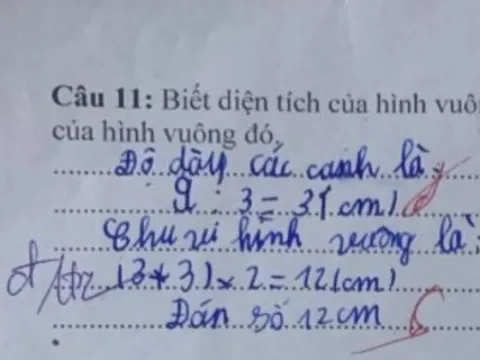 Câu 11: Biết diện tích của hình vuô
của hình vuông đó.
Độ dày các cạnh là:
9 : 3 = 3 (cm)
Chu vi hình vuông là:
(3 + 3) x 2 = 12 (cm)
Đán số 12 cm